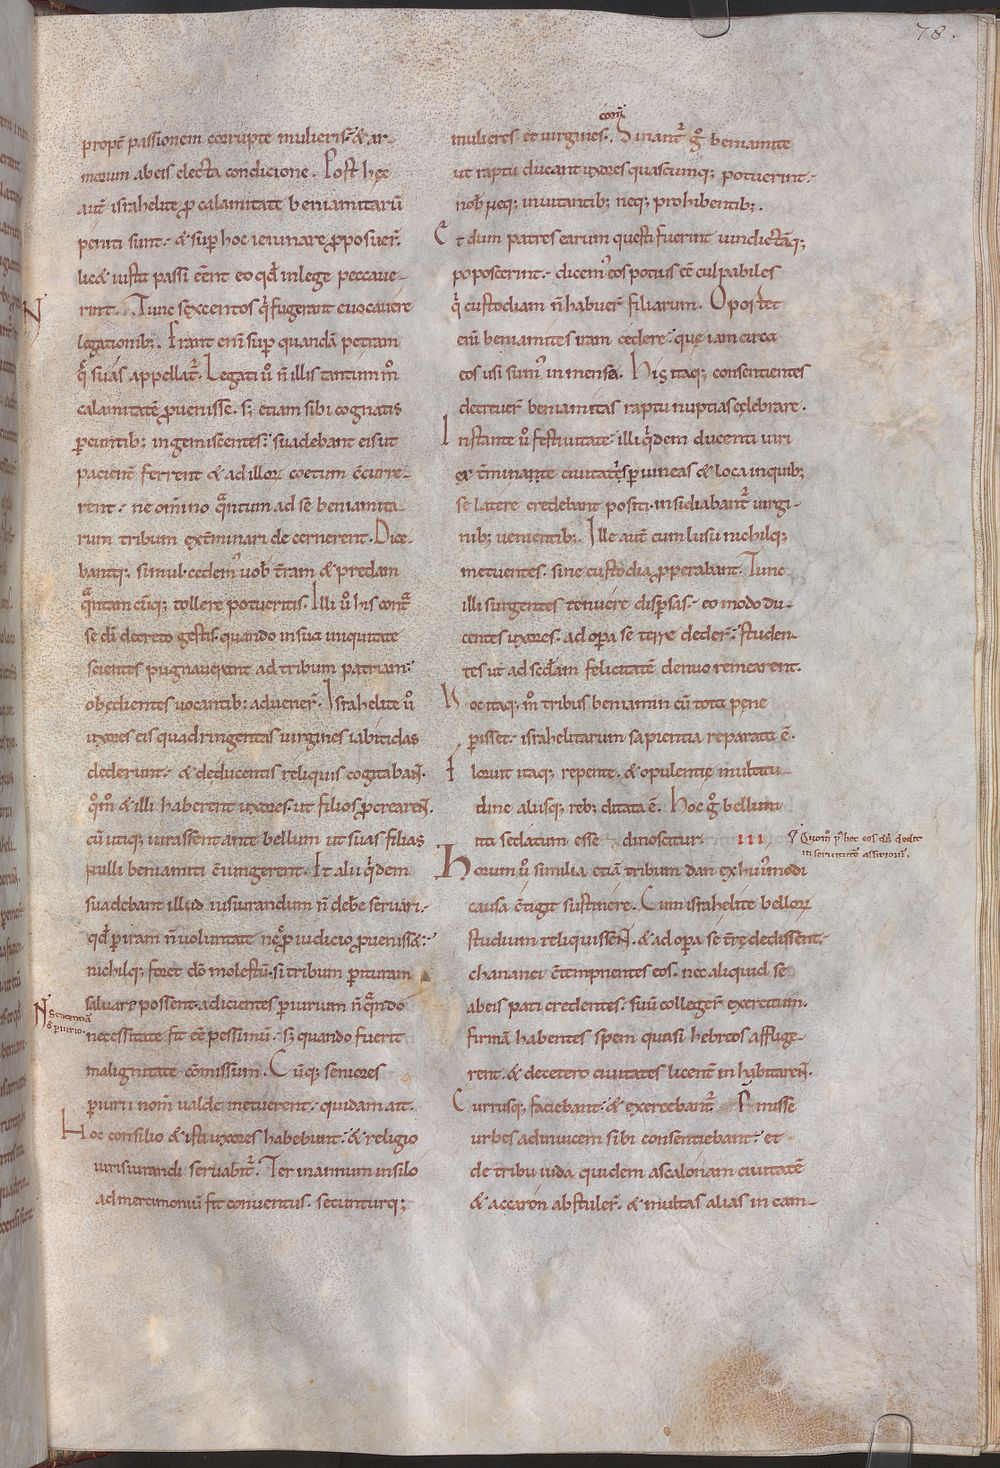 78.
propt̄ passionem corrupte mulieris. & ar-
morum ab eis electa condicione. Post hęc
aut̄ israhelitę p calamitate beniamitarū
peniti sunt. & sup hoc ieiunare pposuer̄.
lic& iusta passi ēēnt eo qđ in lege peccaue-
rint. Tunc sexcentos q̇ fugerant euocauere
legationib;. Erant eni sup quandā petram
q̄ suas appellat̄. Legati ů n̄ illis tantummo
calamitatē puenisse. s; etiam sibi cognatis
pereuntib; ingemiscentes. suadebant eis ut
pacient̄ ferrent & ad illoꝝ coetum c̄curre-
rent. ne om̄ino q̄ntum ad se beniamita-
rum tribum ext̄minari decernerent. Dice-
bantq;. simul cedem uob̄ t̄ram & predam
q̄ntamcūq; tollere potueritis. Illi ů his cont̄
se dī decreto gestis. quando in sua iniquitate
scientes pugnauerant ad tribum patriam.
obędientes uocantib; aduener̄. Israhelitę ů
uxores eis quadringentas uirgines iabitidas
dederunt. & de ducentis reliquis cogitaban̄.
q̄m & illi haberent uxores. ut filios pcrearen̄.
cū utiq; iurassent ante bellum ut suas filias
nulli beniamiti c̄iungerent. Et alii q̇dem
suadebant illud iusiurandum n̄ deb̄e seruari.
qđ p iram n̄ uoluntate neq; p iudicio puenisset.
nichilq; foret dō molestū. si tribum perituram
saluare possent. adicientes piurum n̄ q̄ndo
necessitate fit ēē pessimū. s; quando fuerit
malignitate c̄missum. Cūq; seniores
piurii nom̄ ualde metuerent. quidam ait.
Hoc consilio & isti uxores habebunt. & religio
iurisiurandi seruabit̄. Ter in annum in silo
ad mercimoniū fit conuentus. secunturq;
Sentenciā
d̄ piurio.
com̄
mulieres et uirgines. Sinant̄ ġ beniamite
ut raptu ducant uxores quascumq; potuerint.
nob̄ neq; inuitantib; neq; prohibentib;.
Et dum patres earum questi fuerint uindictāq;
poposcerint. dicem̉ eos potius ēē culpabiles
q̇ custodiam n̄ habuer̄ filiarum. Oportet
eni beniamites iram cedere. quę iam circa
eos usi sum̉ in mensa. His itaq; consentientes
decreuer̄ beniamitas raptu nuptias cęlebrare.
Instante ů festiuitate. illi q̇dem ducenti uiri
ex t̄minante ciuitates p uineas & loca in quib;
se latere credebant positi. insidiabant̄ uirgi-
nib; uenientib;. Ille aut̄ cum lusu nichilq;
metuentes. sine custodia pperabant. Tunc
illi surgentes tenuere dispersas. eo modo du-
centes uxores. ad opa se terre deder̄. studen-
tes ut ad sedam felicitatē denuo remearent.
Hoc itaq; m̊ tribus beniamin cū tota pęne
pisset. israhelitarum sapientia reparata ē.
Floruit itaq; repente. & opulentię multitu-
dine aliisq; reb; ditata ē. Hoc ġ bellum
ita sedatum esse dinoscitur. III
Quom̄ p̱ hęc eos dš dedit
in seruitutē assiriorū.
Horum ů similia etiā tribum dan ex huỉmodi
causa c̄tigit sustinere. Cum israhelite belloꝝ
studium reliquissen̄. & ad opa se t̄rę dedissent.
chananei c̄tempnentes eos. nec aliquid se
ab eis pati credentes. suū colleger̄ exercitum.
firmā habentes spem quasi hebreos afflige-
rent. & decetero ciuitates licent̄ inhabitaren̄.
Currusq; faciebant. & exercebant̄ pmisse
urbes adinuicem sibi consentiebant. et
de tribu iuda quidem ascalonam ciuitatē
& accaron abstuler̄. & multas alias in cam-